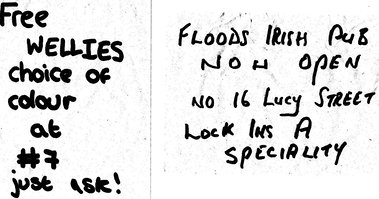 Free
WELLIES
choice of
colour
at
#7
just ask!
FLOODS IRISH PUB
NOW OPEN
NO 16 LUCY STREET
LOCK INS A
SPECIALITY